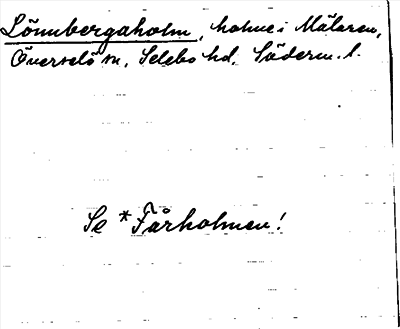 Lönnbergaholm, holme i Mälaren,
Överselö sn, Selebo hd, Söderm. l.
Se *Fårholmen!